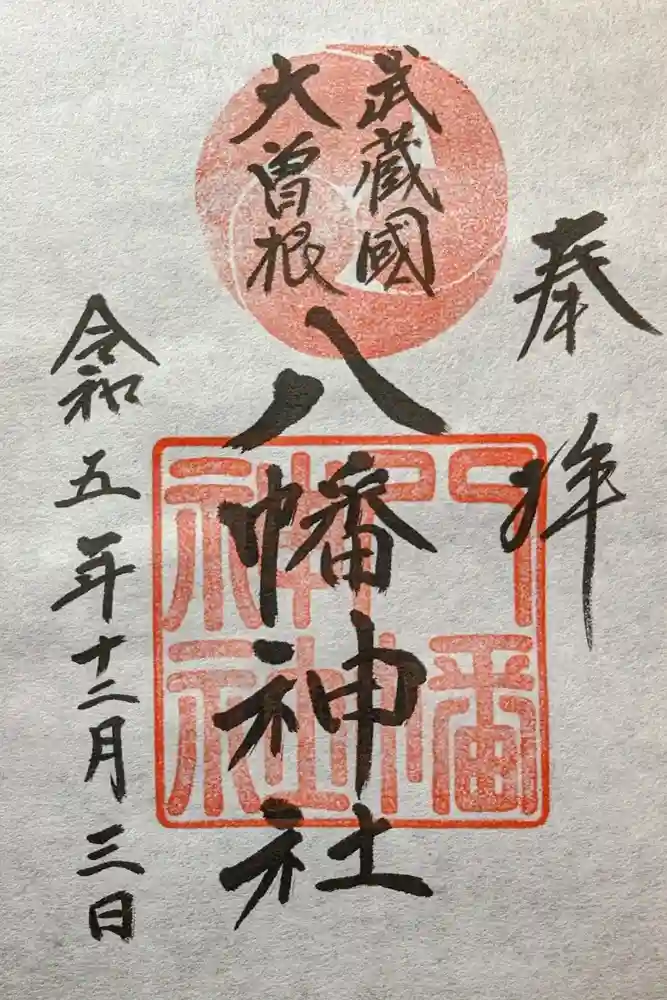 奉拝
武蔵國
大曽根
八幡神社
八幡神社
令和五年十二月三日